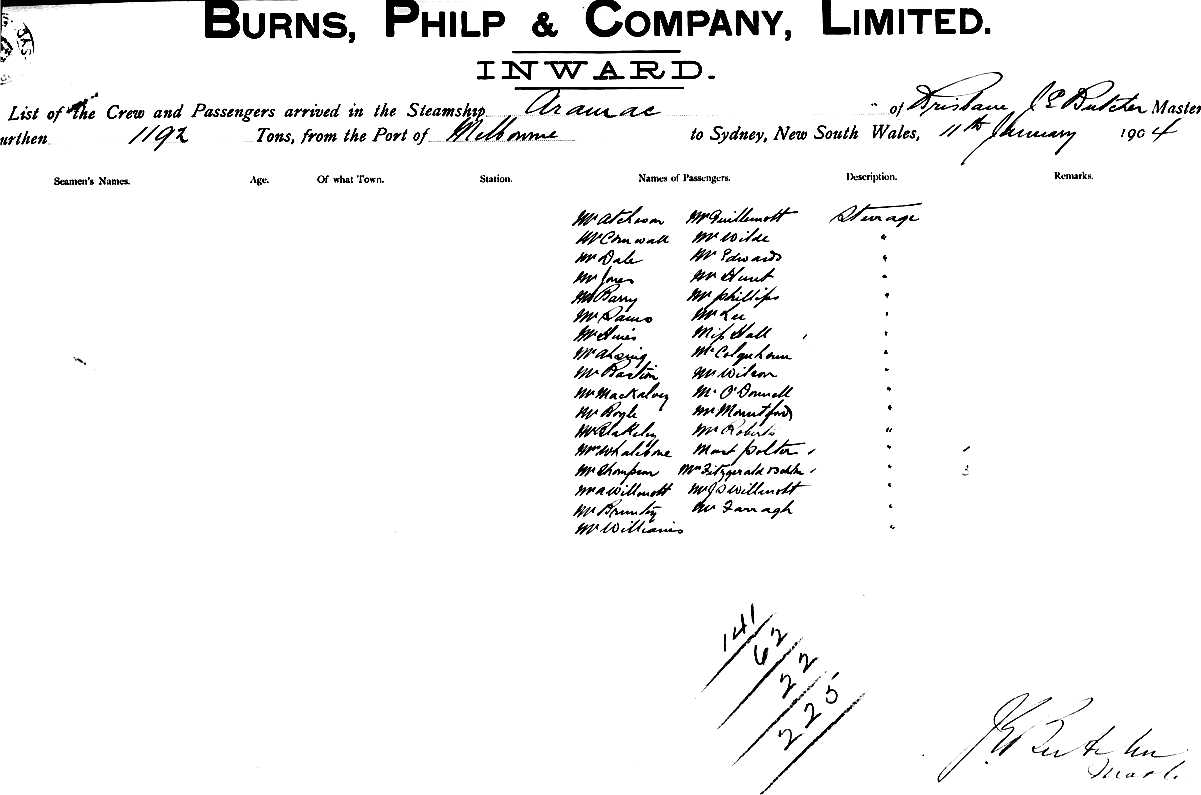 BURNS, PHILP & COMPANY, LIMITED.
INWARD.
List of the Crew and Passengers arrived in the Steamship Aramac of Brisbane J E Butcher Master
urthen 1192 Tons, from the Port of Melbourne to Sydney, New South Wales, 11th January 1904
Seamen's Names. Age. Of what Town. Station. Names of Passengers. Description. Remarks.
Mr Atcheson Mr Guillemott Steerage
Mr Cornwall Mr Wilde "
Mr Dale Mr Edwards "
Mr Jones Mr Hunt "
Mr Barry Mr Phillips "
Mr Mr Lee "
Mr Hines Miss Hall "
Mr Mr Colquhoun "
Mr Bastin Mr Wilson "
Mr Mackalvey Mr O'Donnell "
Mr Boyle Mr Mountford "
Mr Blakeley Mr Roberts "
Mr Whalebone Mast Polter "
Mr Thompson Mrs Fitzgerald "
Mr A Willmott Mr J D Willmott "
Mr Brumby Mr Farragh "
Mr Williams "
141
62
22
225
J E Butcher